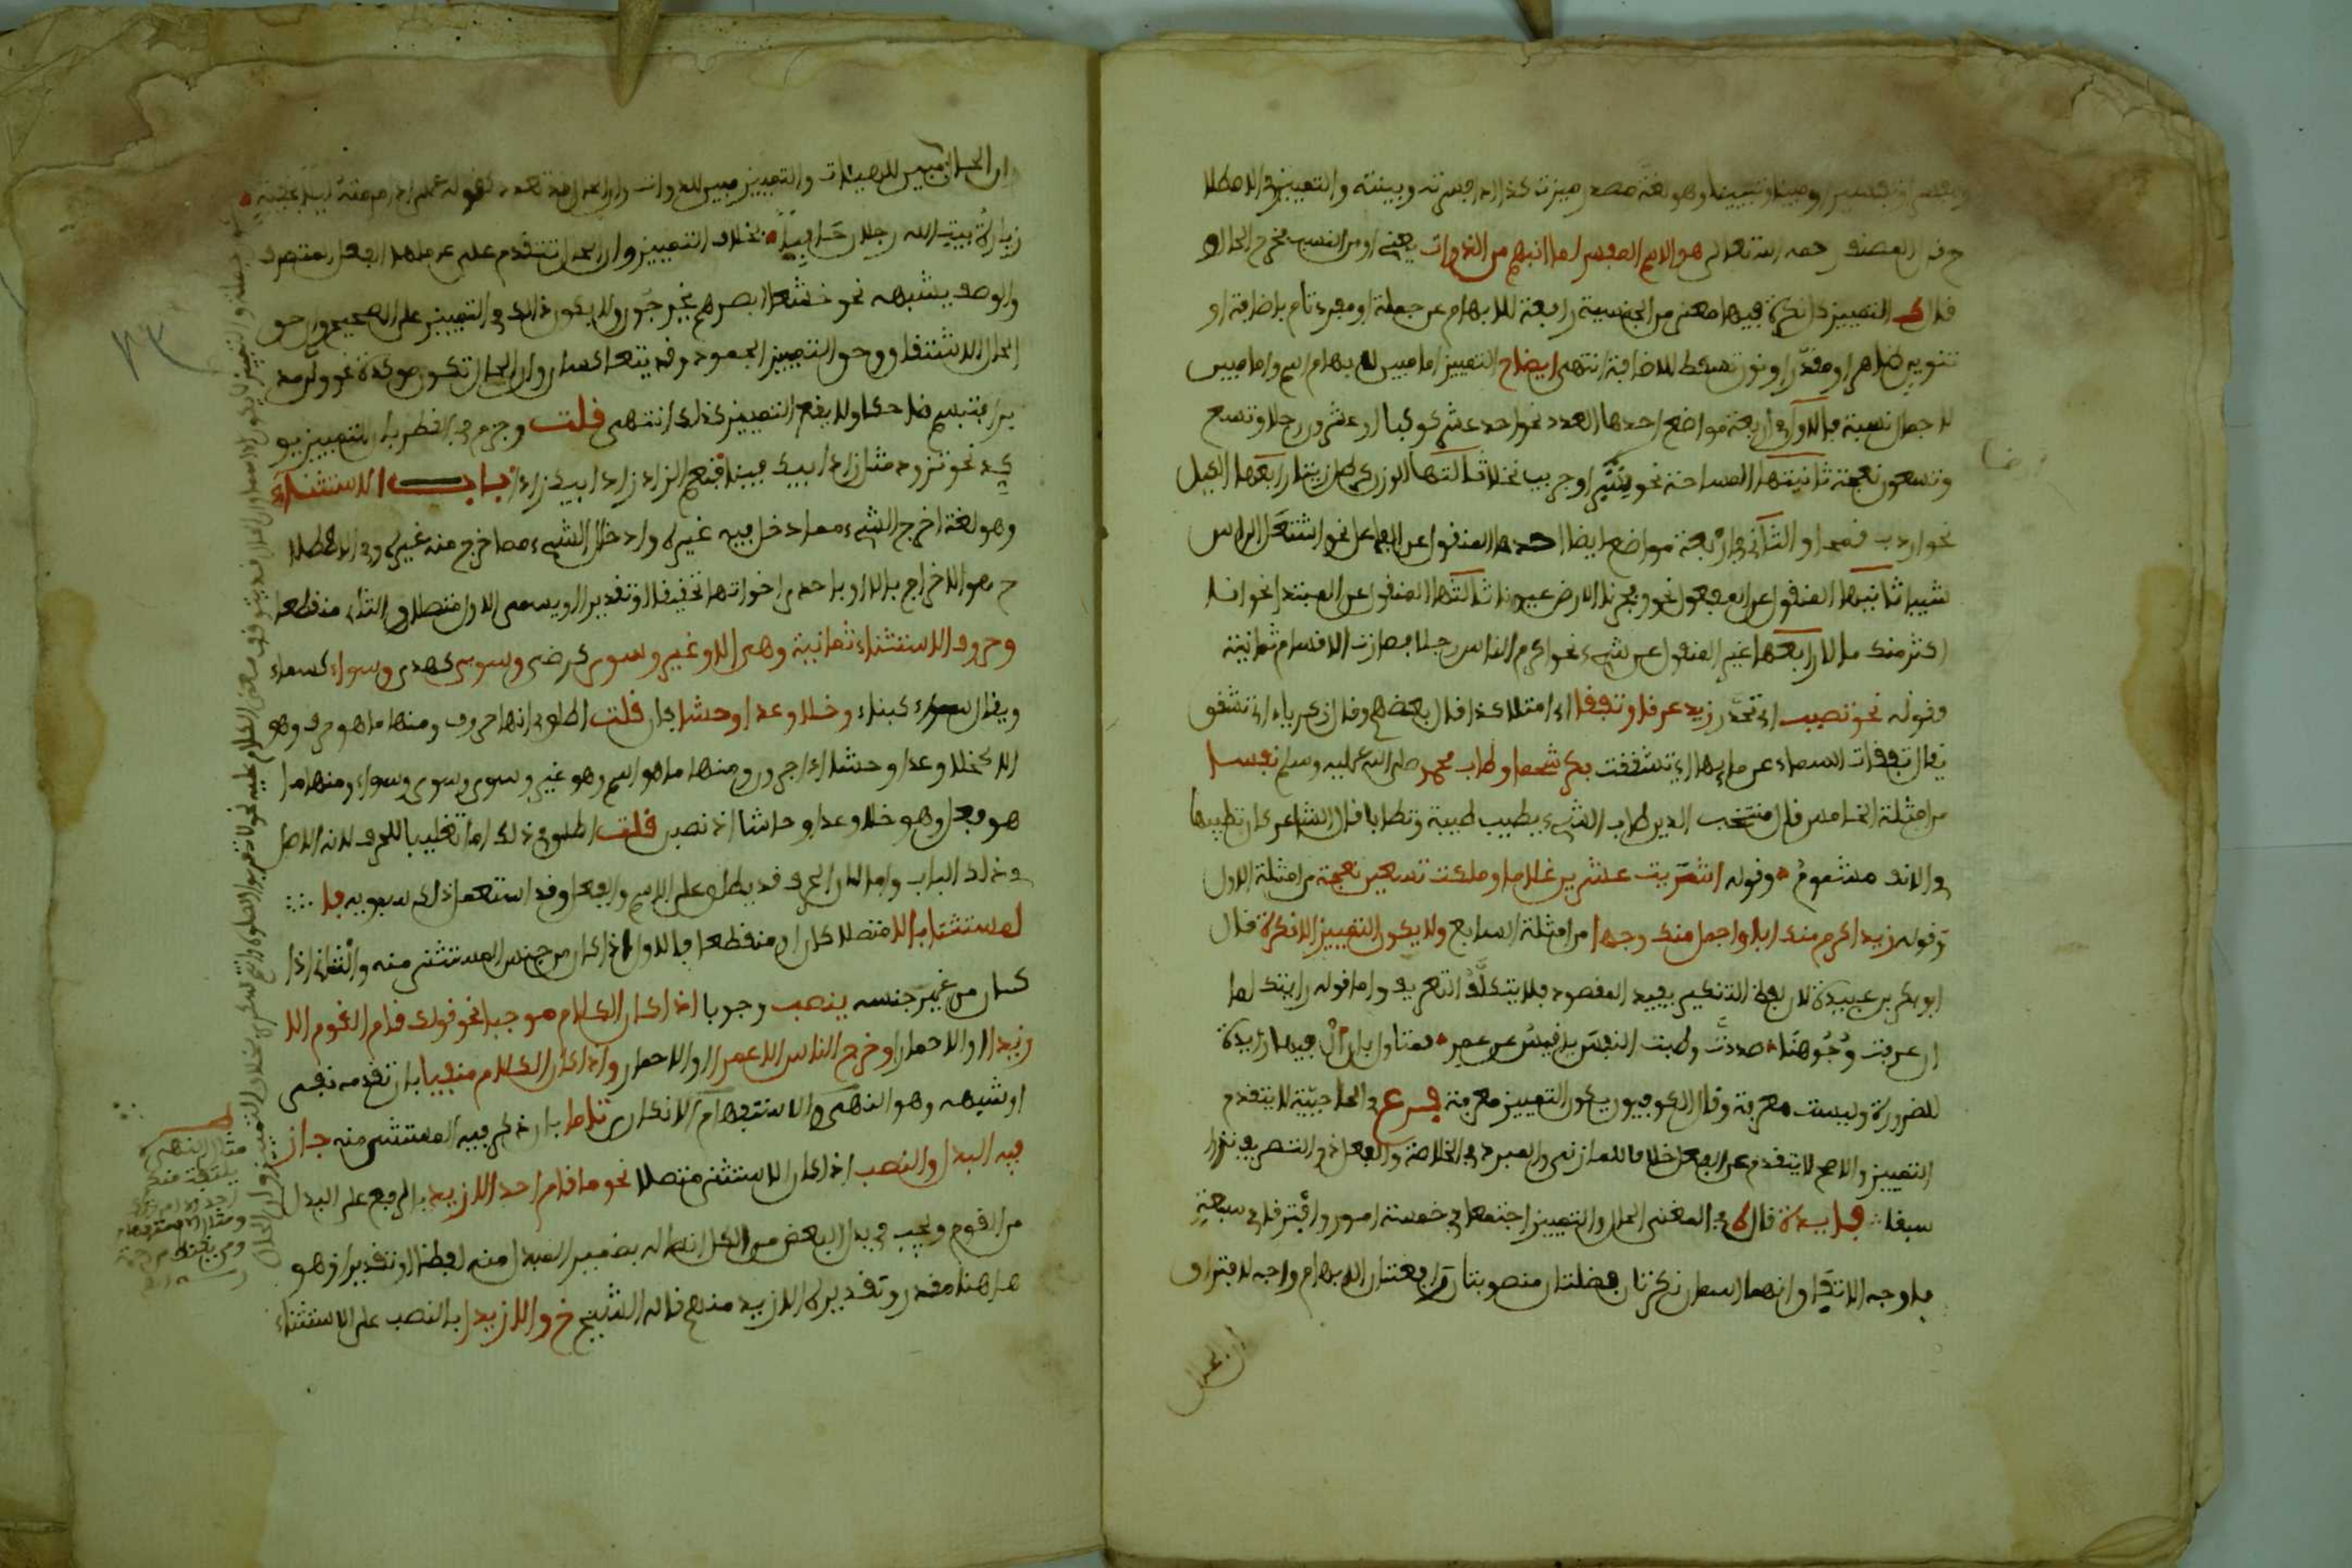 ومفسرا وتفسيرا ومبينا وتبيينا وهو لغة مصدر ميزت كذا اذا فسرته وبينته والتمييز في الاصطلا
ح قال المصنف رحمه الله تعالى هو الاسم المفسر لما انبهم من الذوات يعني او من النسب مخرج الحال
قال التمييز نكرة فيها معنى من الجنسية رافعة للابهام عن جملة او مفرد تام باضافة او
تنوين ظاهر او مقدر او نون تسقط للاضافة انتهى ايضاح التمييز اما مبين لابهام اسم واما مبين
لاجمال نسبة فالاول في اربعة مواضع احدها العدد نحو احد عشر كوكبا او عشرون رجلا وتسع
وتسعون نعجة ثانيتها المساحة نحو شبر او جريب نخلا ثالثها الوزن كرطل زيتا رابعها الكيل
نحو اردب قمحا والثاني في اربعة مواضع ايضا احدها المنقول عن الفاعل نحو اشتعل الراس
شيبا ثانيها المنقول عن المفعول نحو وفجرنا الارض عيونا ثالثها المنقول عن المبتدا نحو انا
اكثر منك مالا رابعها غير المنقول عن شيء نحو اكرم الناس رجلا فصارت الاقسام ثمانية
وقوله نحو تصبب اي تحدر زيد عرقا وتفقا الى امثلة كذا قال بعضهم وقال زكرياء اي تشقق
يقال تفقات السماء عن مايها اي تشققت بكر شحما وطاب محمد صلى الله عليه وسلم نفسا
من امثلة الخامس قال منتخب الدين طاب الشيء يطيب طيبة وتطيابا قال الشاعر كان تطيابها
في الانف مشموم وقوله اشتريت عشرين غلاما وملكت تسعين نعجة من امثلة الاول
وقوله زيد اكرم منك ابا واجمل منك وجها من امثلة السابع ولا يكون التمييز الا نكرة قال
ابو بكر بن عبيدة لان لفظ التنكير يفيد المقصود فلا يتكلف التعريف واما قوله رايتك لما
ان عرفت وجوهنا صددت وطبت النفس يا قيس عن عمرو فمتاول بان ال فيها زايدة
للضرورة وليست معرفة وقال الكوفيون يكون التمييز معرفة فرع في الحاجبية لا يتقدم
التمييز والاصح لا يتقدم على الفعل خلافا للمازني والمبرد في الخلاصة والفعل ذو التصريف نزرا
سبقا فايدة قال في المغني الحال والتمييز اجتمعا في خمسة امور وافترقا في سبعة
فاوجه الاتفاق انهما اسمان نكرتان فضلتان منصوبتان رافعتان للابهام واوجه الافتراق
ان الحال
ان الحال مبين للهيئات والتمييز مبين للذوات
زيارة بيت الله رجلان حافيا بخلاف التمييز وان الحال تتقدم على عاملها الفعل المتصرف
والوصف يشبهه نحو خشعا ابصرهم يخرجون ولا يكون ذلك في التمييز على الصحيح وان حق
الحال الاشتقاق وحق التمييز الجمود وقد يتعاكسان وان الحال تكون موكدة نحو ولى مد
برا فتبسم ضاحكا ولا يقع التمييز كذلك انتهى قلت وجزم في القطر بان التمييز يو
كد نحو تزود مثل زاد ابيك فينا فنعم الزاد زاد ابيك زادا باب الاستثناء
وهو لغة اخرج الشيء مما دخل فيه غيره وادخال الشيء مما خرج منه غيره وفي الاصطلا
ح هو الاخراج بالا او باحدى اخواتها تحقيقا او تقديرا ويسمى الاول متصلا والثاني منقطعا
وحروف الاستثناء ثمانية وهي الا وغير وسوى كرضى وسوى كهدى وسواء كسماء
ويقال سواء كبناء وخلا وعدا وحشا فان قلت اطلق انها حروف ومنها ما هو حرف وهو
الا كخلا وعدا وحشا اذا جررن ومنها ما هو اسم وهو غير وسوى وسوى وسواء ومنها ما
هو فعل وهو خلا وعدا وحاشا اذ نصبن قلت اطلق ذلك اما تغليبا للحرف لانه الاصل
في ذلك الباب واما لان الحرف قد يطلق على الاسم والفعل وقد استعمل ذلك سيبويه فا
لمستثنا بالا متصلا كان او منقطعا فالاول اذا كان من جنس المستثنى منه والثاني اذا
كان من غير جنسه ينصب وجوبا اذا كان الكلام موجبا نحو قولك قام القوم الا
زيدا او الا حمارا وخرج الناس الا عمرا او الا حمارا واذا كان الكلام منفيا بان تقدمه نفي
او شبهه وهو النهي والاستفهام الانكاري تاما بان ذكر فيه المستثنى منه جاز
فيه البدل والنصب اذا كان الاستثنى متصلا نحو ما قام احد الا زيد بالرفع على البدل
من القوم ويجب في بدل البعض من الكل اتصاله بضمير المبدل منه لفظا او تقديرا وهو
هاهنا مقدر وتقديره الا زيد منهم قاله الشيخ خ والا زيدا بالنصب على الاستثناء
مثال النهي ولا
يلتفت منكم
احد الا امراتك
ومثال الاستفهام
ومن يقنط من رحمة